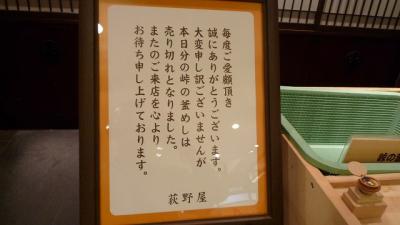 毎度ご愛顧頂き
誠にありがとうございます。
大変申し訳ございませんが
本日分の峠の釜めしは
売り切れとなりました。
またのご来店を心より
お待ち申し上げております。
荻野屋